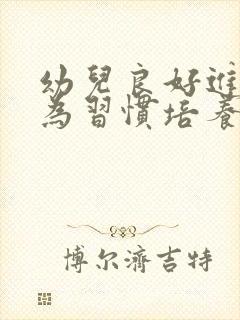 幼兒良好進
為習慣培養
博尔濟吉特